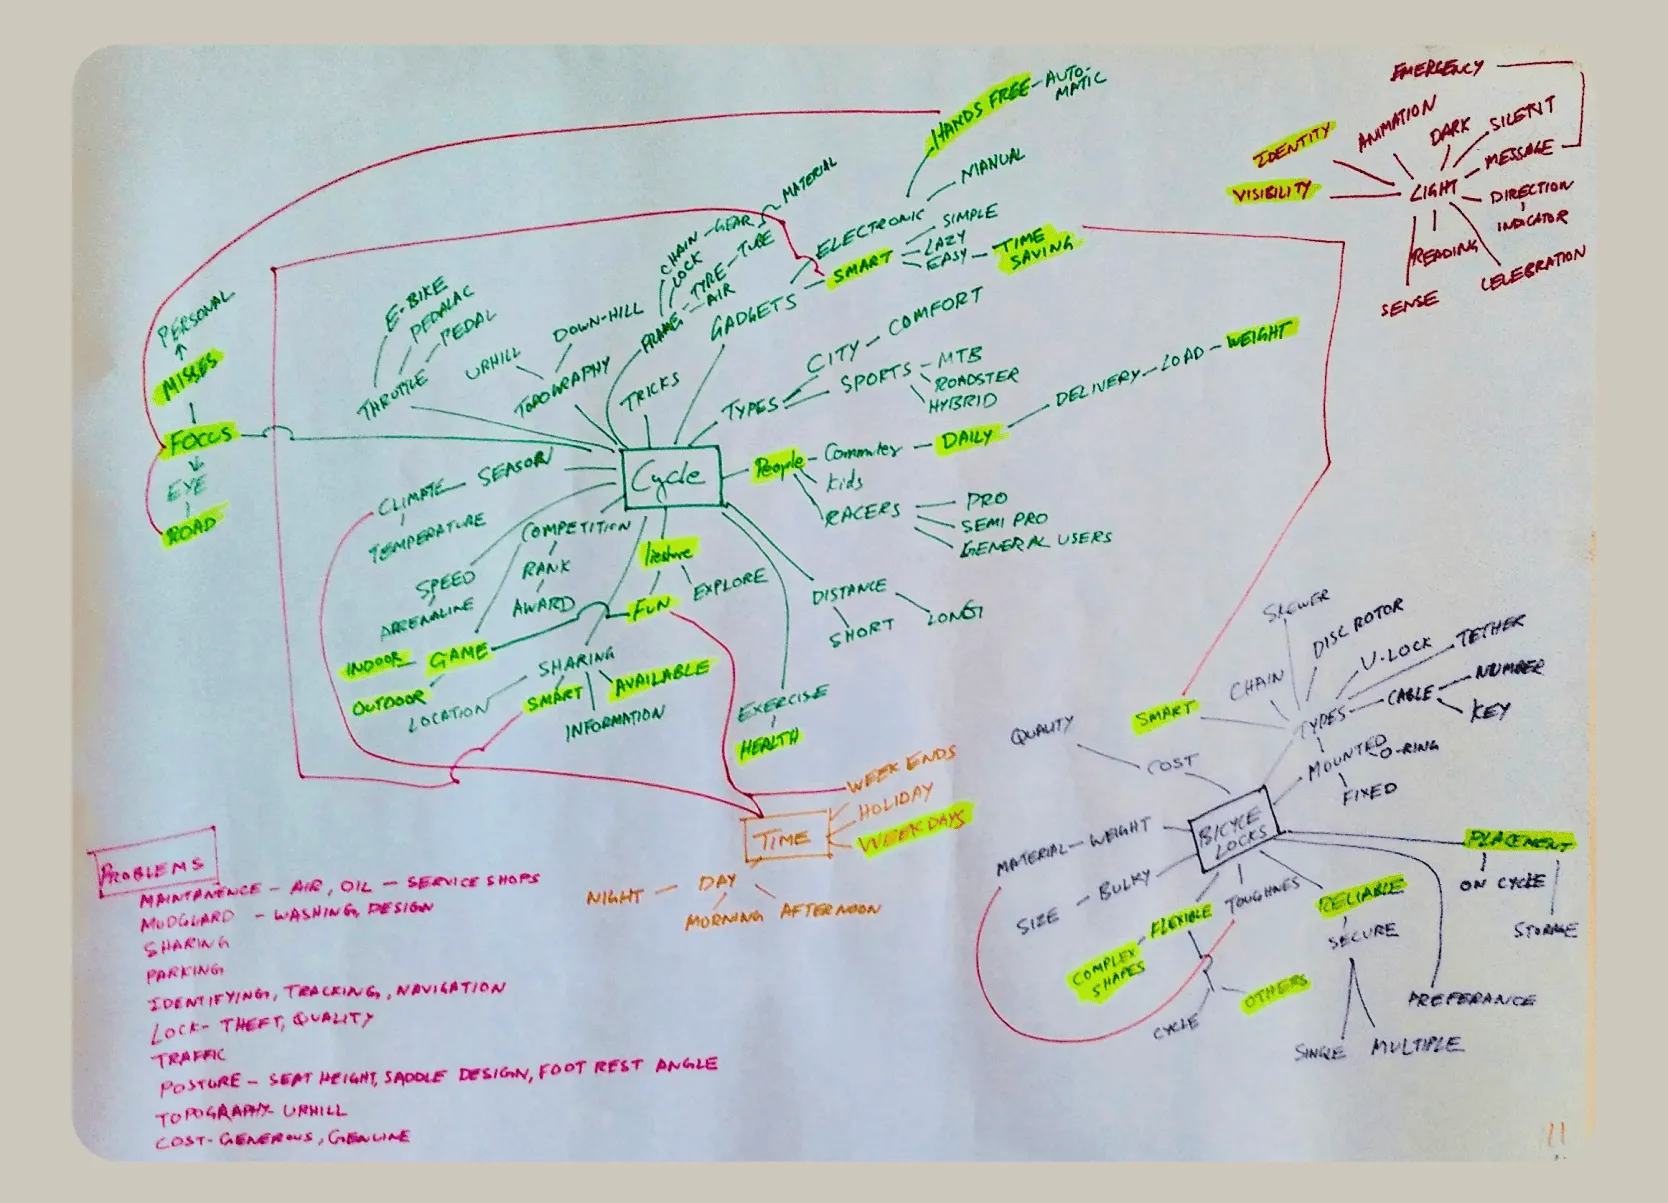 EMERGENCY
ANIMATION
DARK
SILENT
IDENTITY
MESSAGE
VISIBILITY
LIGHT
DIRECTION
INDICATOR
READING
CELEBRATION
SENSE
HANDS FREE - AUTO-
MATIC
MANUAL
ELECTRONIC
SIMPLE
SMART
LAZY
EASY - TIME
SAVING
GADGETS
CHAIN - GEAR
MATERIAL
LOCK
TYRE - TUBE
AIR
FRAME
DOWN-HILL
UPHILL
TOPOGRAPHY
TRICKS
E-BIKE
PEDALAC
PEDAL
THROTTLE
PERSONAL
MISSES
FOCUS
EYE
ROAD
TYPES
CITY - COMFORT
SPORTS - MTB
ROADSTER
HYBRID
Cycle
People - Commuter - DAILY - DELIVERY - LOAD - WEIGHT
Kids
RACERS - PRO
SEMI PRO
GENERAL USERS
CLIMATE - SEASON
TEMPERATURE
COMPETITION
RANK
AWARD
SPEED
ADRENALINE
INDOOR - GAME
OUTDOOR
liesure
FUN
EXPLORE
DISTANCE
SHORT
LONG
SHARING
SMART
AVAILABLE
LOCATION
INFORMATION
EXERCISE
HEALTH
WEEK ENDS
HOLIDAY
WEEK DAYS
TIME
NIGHT - DAY
MORNING
AFTERNOON
SKEWER
DISC ROTOR
U-LOCK
TETHER
CHAIN
CABLE
NUMBER
KEY
SMART
TYPES
MOUNTED
O-RING
FIXED
QUALITY
COST
BICYCLE
LOCKS
MATERIAL - WEIGHT
SIZE - BULKY
FLEXIBLE
TOUGHNES
RELIABLE
SECURE
SINGLE
MULTIPLE
COMPLEX
SHAPES
CYCLE
OTHERS
PLACEMENT
ON CYCLE
STORAGE
PREFERANCE
PROBLEMS
MAINTANENCE - AIR, OIL - SERVICE SHOPS
MUDGUARD - WASHING, DESIGN
SHARING
PARKING
IDENTIFYING, TRACKING, NAVIGATION
LOCK - THEFT, QUALITY
TRAFFIC
POSTURE - SEAT HEIGHT, SADDLE DESIGN, FOOT REST ANGLE
TOPOGRAPHY - UPHILL
COST - GENEROUS, GENUINE